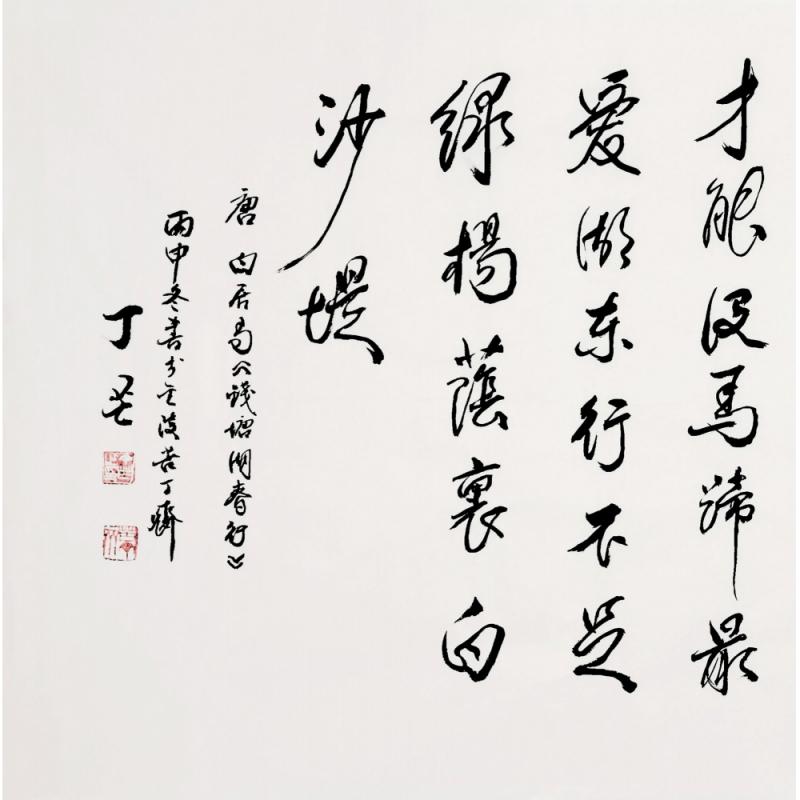 才能没马蹄最
爱湖东行不足
绿杨蔭裏白
沙堤
唐 白居易《钱塘湖春行》
丙申冬书於苦丁齋
丁芒